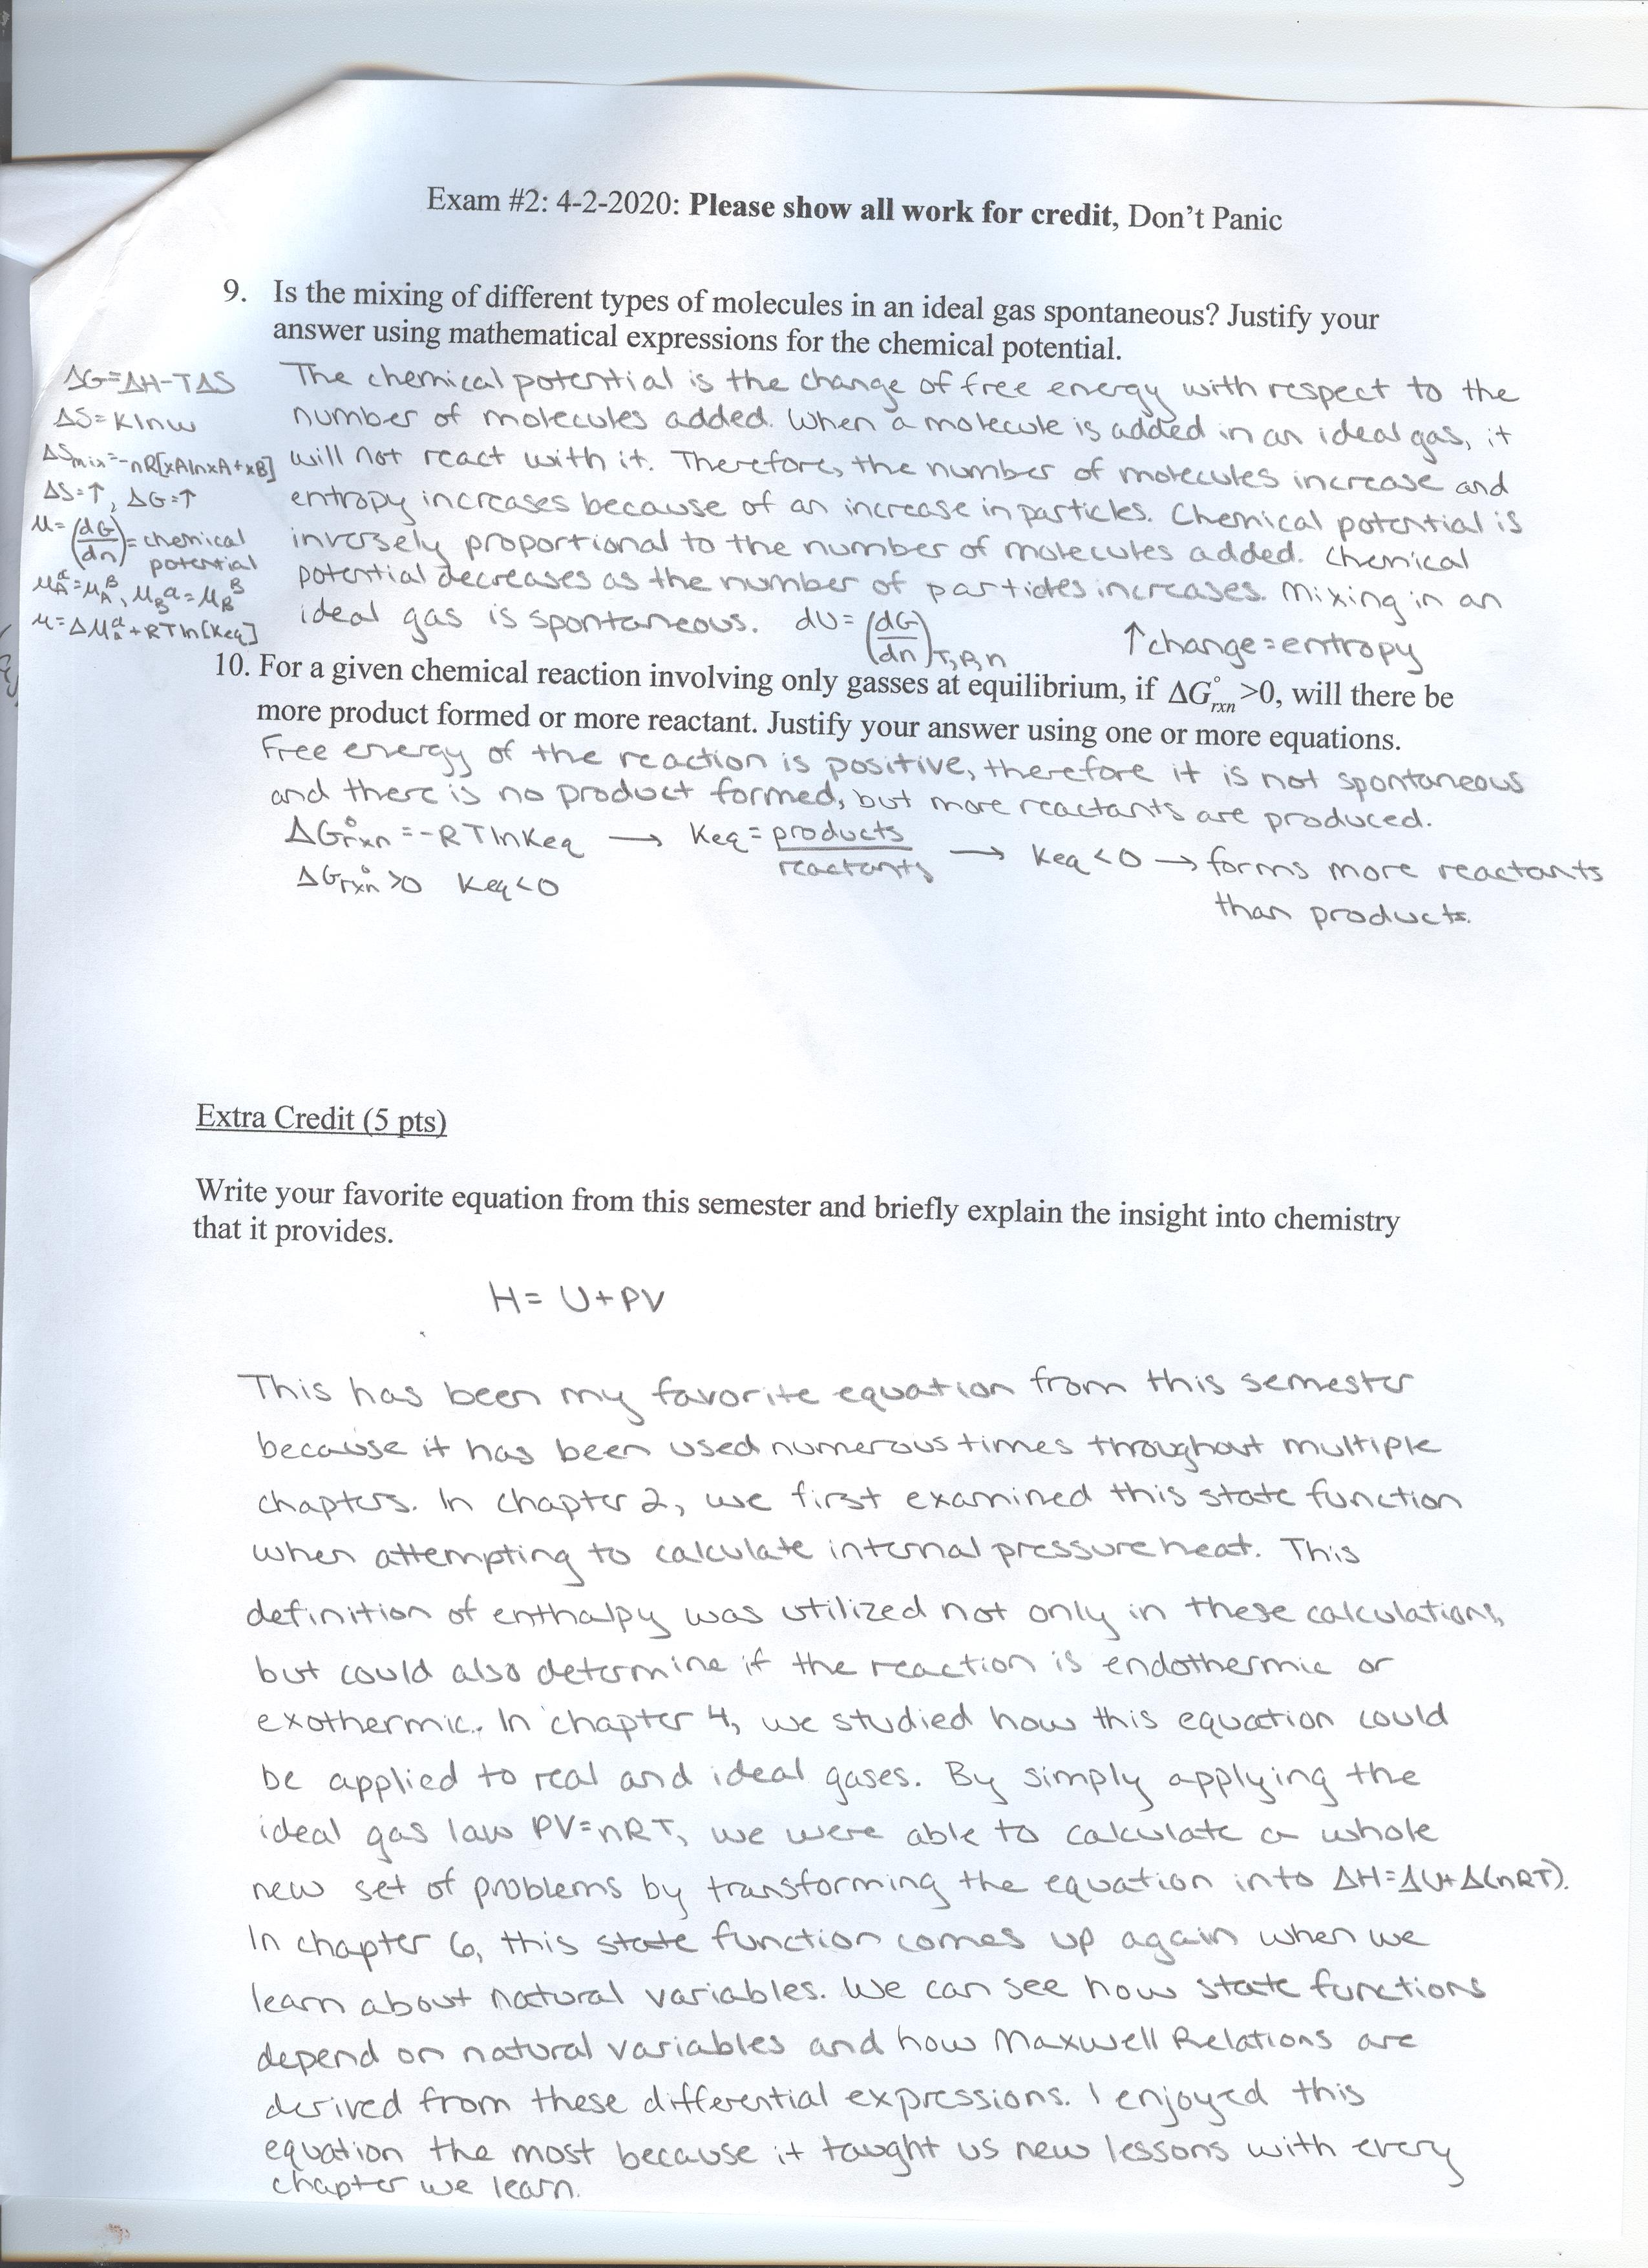 Exam #2: 4-2-2020: Please show all work for credit, Don't Panic
9. Is the mixing of different types of molecules in an ideal gas spontaneous? Justify your
answer using mathematical expressions for the chemical potential.
ΔG=ΔH-TΔS
ΔS=Klnw
ΔSmix=-nR[xAlnxA+xB]
ΔS=↑, ΔG=↑
μ=(dG/dn)=chemical
potential
μA^α=μA^β, μB^α=μB^β
μ=Δμa^α+RTln[Keq]
The chemical potential is the change of free energy with respect to the
number of molecules added. When a molecule is added in an ideal gas, it
will not react with it. Therefore, the number of molecules increase and
entropy increases because of an increase in particles. Chemical potential is
inversely proportional to the number of molecules added. Chemical
potential decreases as the number of particles increases. Mixing in an
ideal gas is spontaneous. dU=(dG/dn)T,P,n
↑change=entropy
10. For a given chemical reaction involving only gasses at equilibrium, if ΔG°rxn>0, will there be
more product formed or more reactant. Justify your answer using one or more equations.
Free energy of the reaction is positive, therefore it is not spontaneous
and there is no product formed, but more reactants are produced.
ΔG°rxn=-RTlnKeq → Keq=products/reactants → Keq<0 → forms more reactants
than products.
ΔG°rxn>0 Keq<0
Extra Credit (5 pts)
Write your favorite equation from this semester and briefly explain the insight into chemistry
that it provides.
H=U+PV
This has been my favorite equation from this semester
because it has been used numerous times throughout multiple
chapters. In chapter 2, we first examined this state function
when attempting to calculate internal pressure heat. This
definition of enthalpy was utilized not only in these calculations,
but could also determine if the reaction is endothermic or
exothermic. In chapter 4, we studied how this equation could
be applied to real and ideal gases. By simply applying the
ideal gas law PV=nRT, we were able to calculate a whole
new set of problems by transforming the equation into ΔH=ΔU+Δ(nRT).
In chapter 6, this state function comes up again when we
learn about natural variables. We can see how state functions
depend on natural variables and how Maxwell Relations are
derived from these differential expressions. I enjoyed this
equation the most because it taught us new lessons with every
chapter we learn.